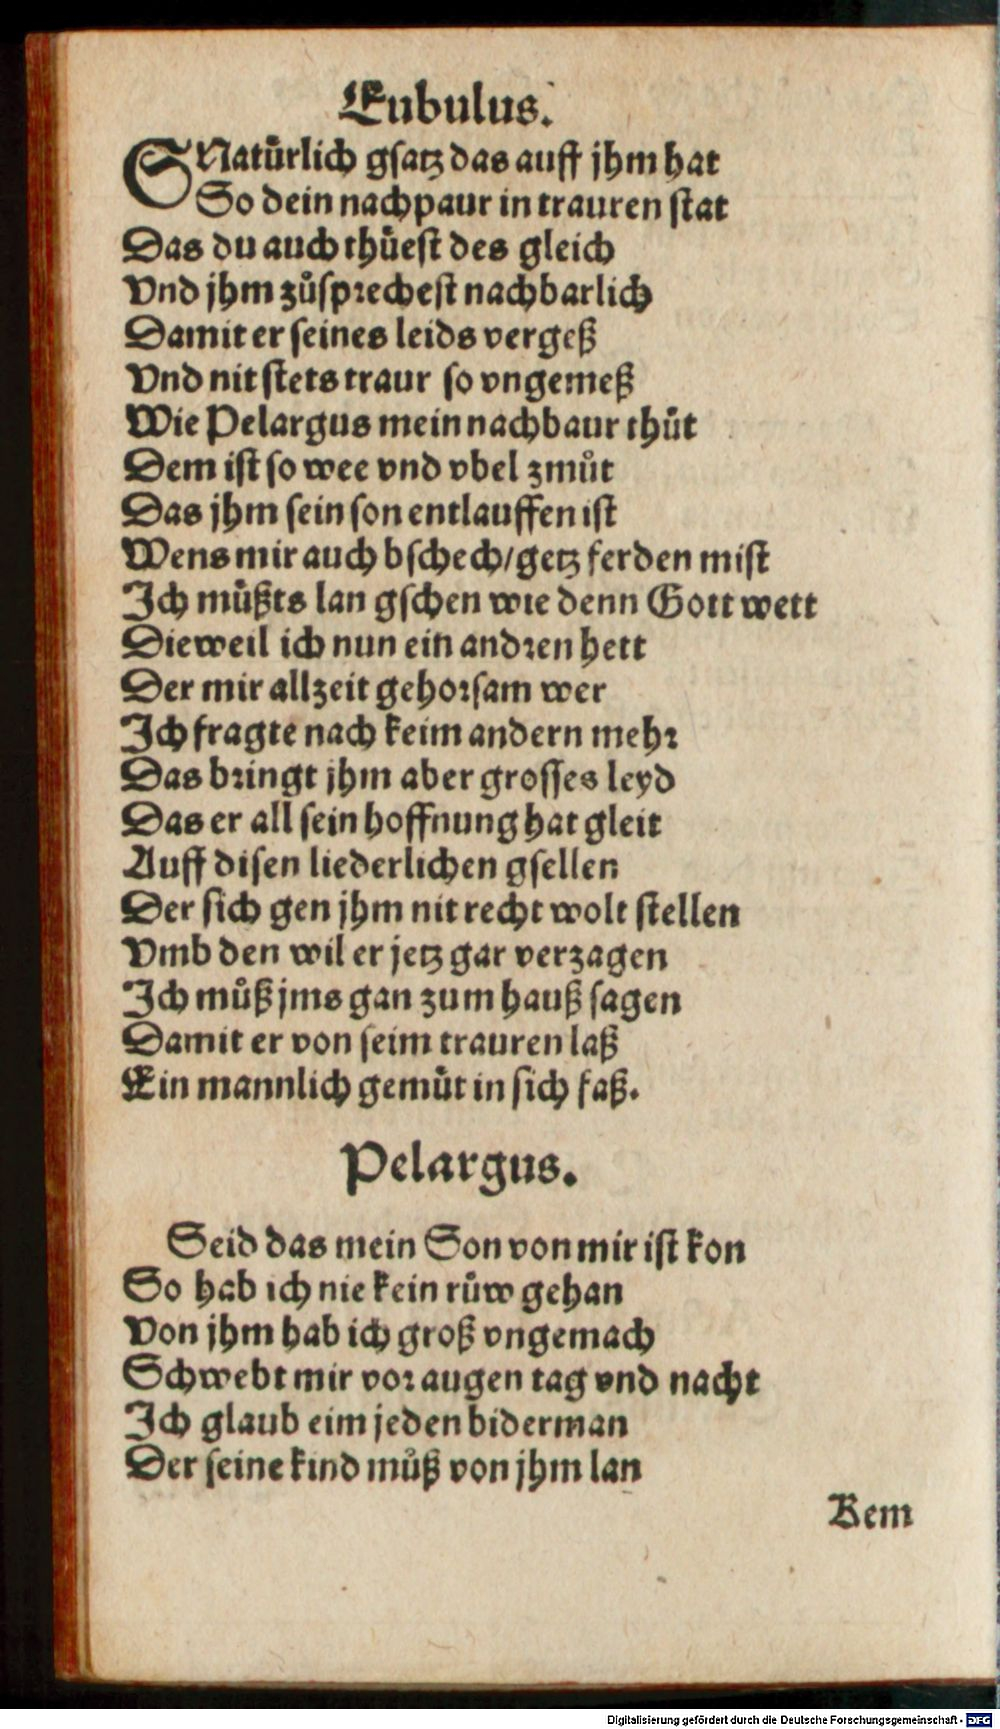 Eubulus.
SNatürlich gsatz das auff jhm hat
So dein nachpaur in trauren stat
Das du auch thüest des gleich
Vnd jhm zůsprechest nachbarlich
Damit er seines leids vergeß
Vnd nit stets traur so vngemeß
Wie Pelargus mein nachbaur thůt
Dem ist so wee vnd vbel zmůt
Das jhm sein son entlauffen ist
Wens mir auch bschech/getz ferden mist
Ich můßts lan gschen wie denn Gott wett
Dieweil ich nun ein andren hett
Der mir allzeit gehorsam wer
Ich fragte nach keim andern mehr
Das bringt jhm aber grosses leyd
Das er all sein hoffnung hat gleit
Auff disen liederlichen gsellen
Der sich gen jhm nit recht wolt stellen
Vmb den wil er jetz gar verzagen
Ich můß jms gan zum hauß sagen
Damit er von seim trauren laß
Ein mannlich gemüt in sich faß.
Pelargus.
Seid das mein Son von mir ist kon
So hab ich nie kein růw gehan
Von jhm hab ich groß vngemach
Schwebt mir vor augen tag vnd nacht
Ich glaub eim jeden biderman
Der seine kind můß von jhm lan
Kem
Digitalisierung gefördert durch die Deutsche Forschungsgemeinschaft - DFG